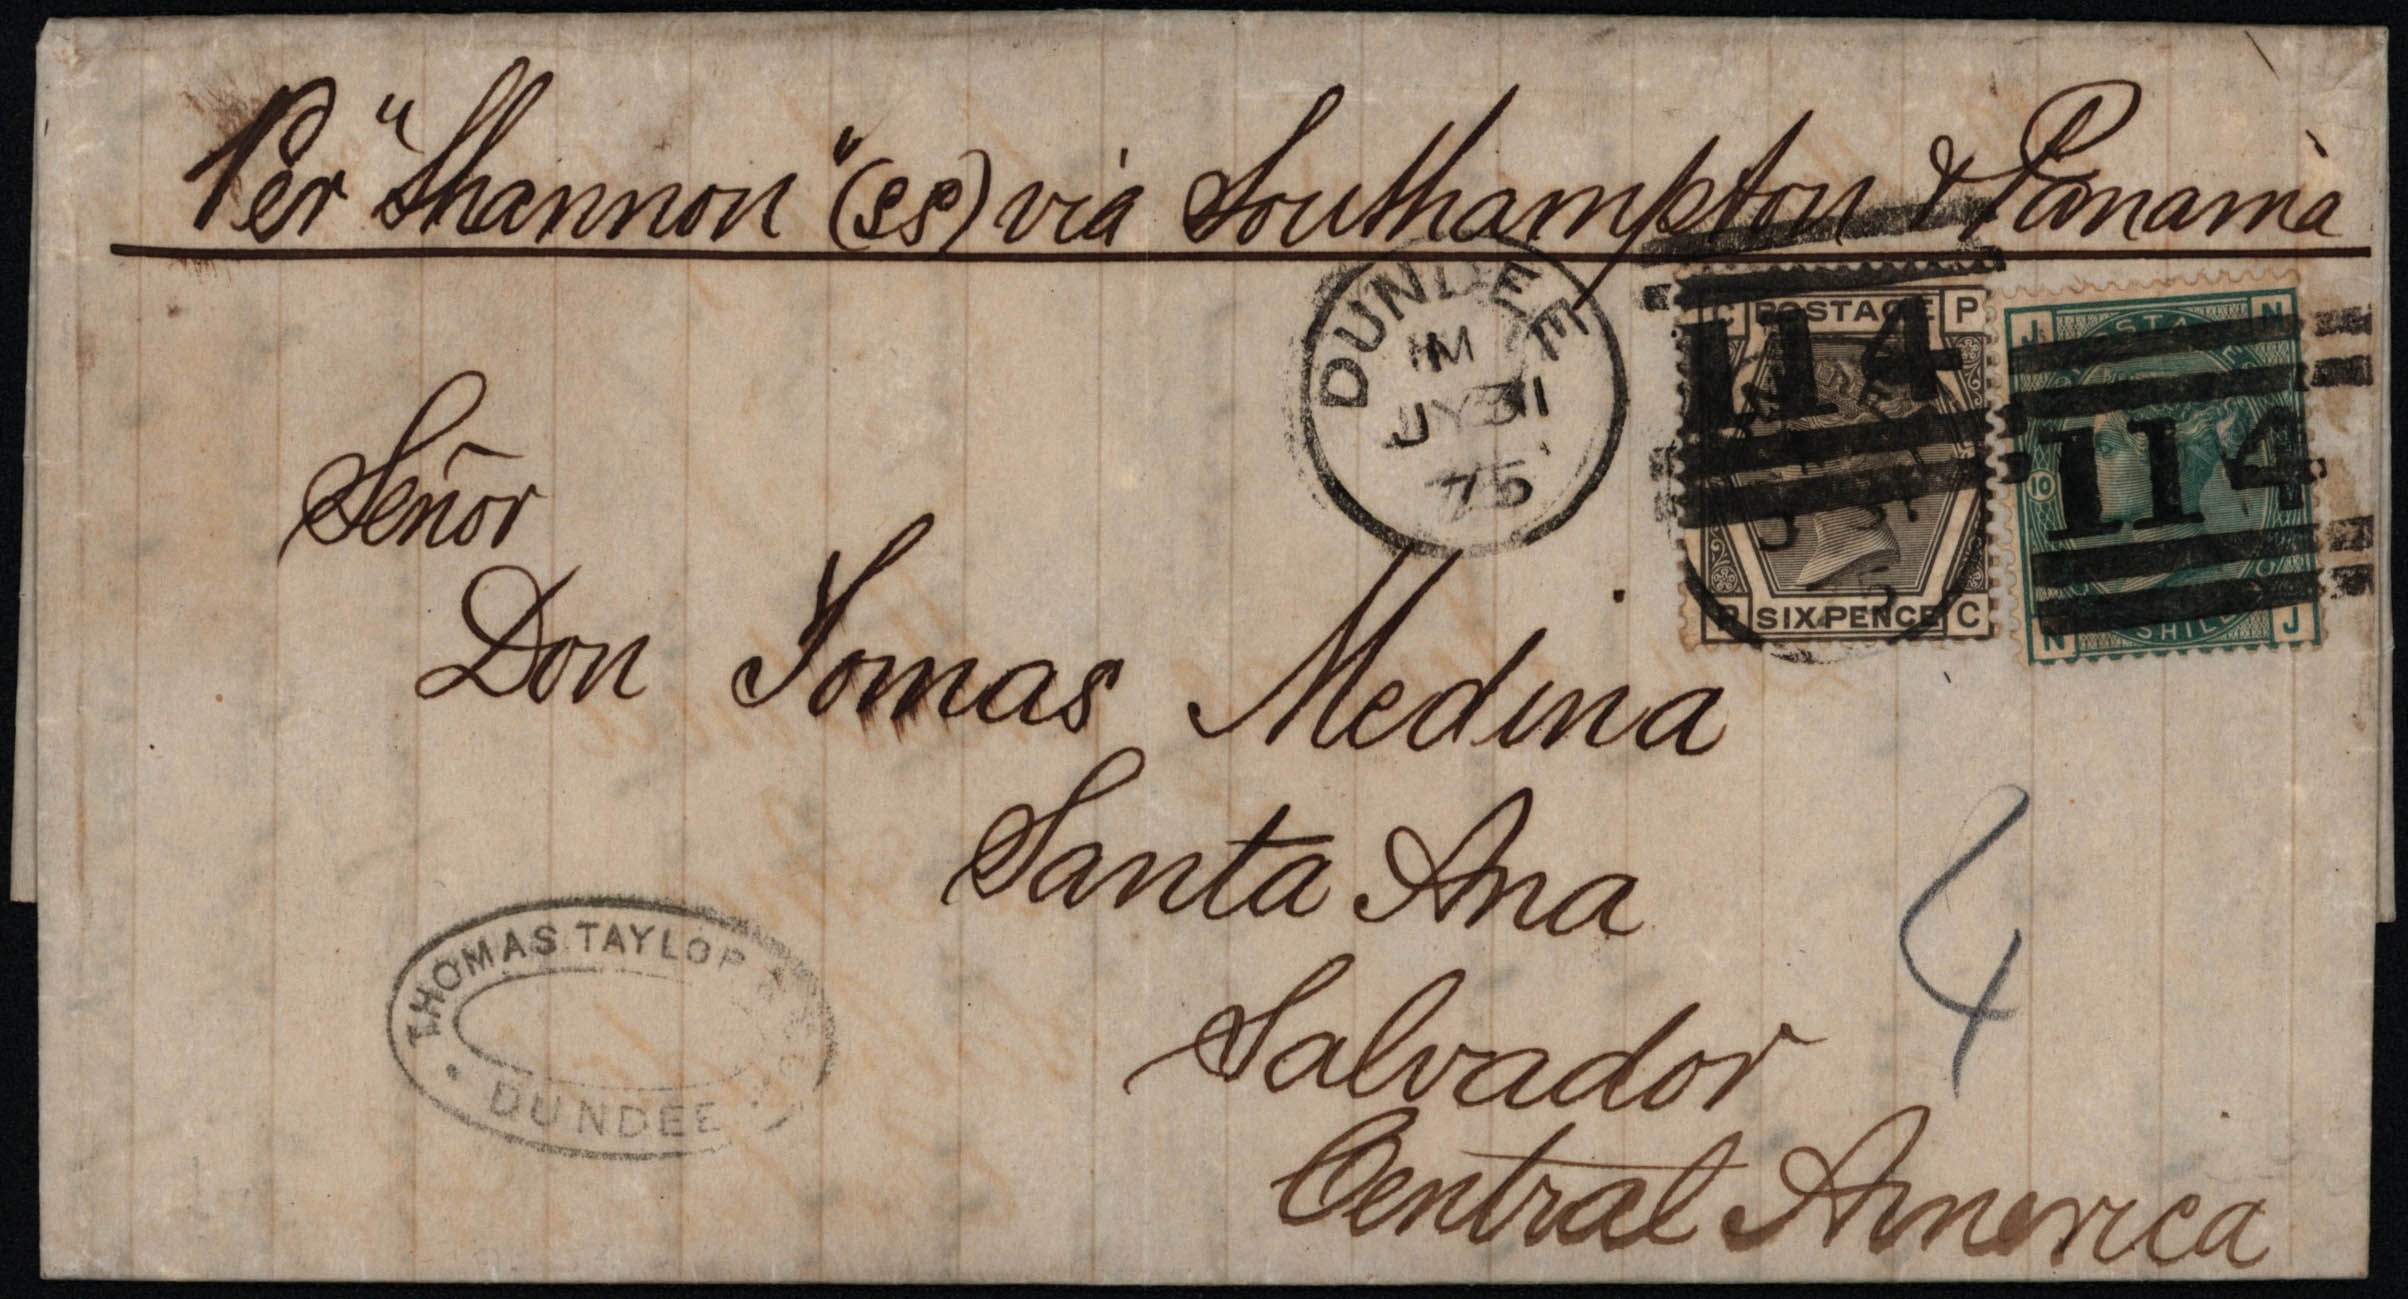 Per "Shannon" (ss) via Southampton & Panamà
DUNDEE
JY 31
75
C POSTAGE P
114
SIX PENCE C
J N
10
114
N SHILL J
Señor
Don Tomas Medina
Santa Ana
Salvador
Central America
4
THOMAS TAYLOR
DUNDEE